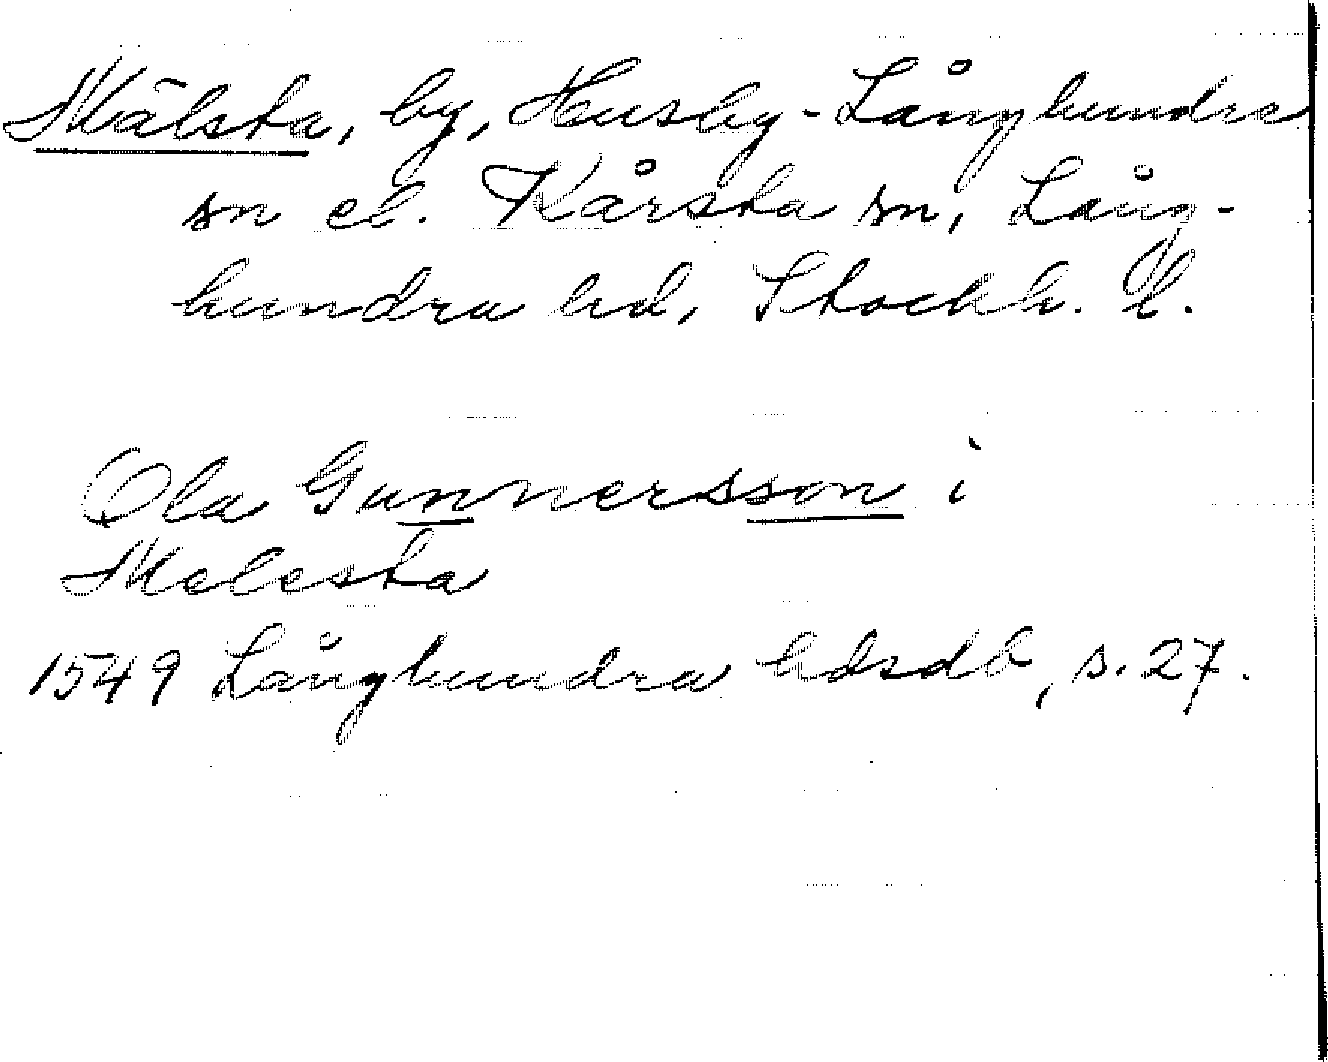 Mälsta, by, Husby-Långhundra
sn el. Kårsta sn, Lång-
hundra hd, Stockh. l.
Ola Gunnersson i
Melesta
1549 Långhundra hdsdb, s. 27.